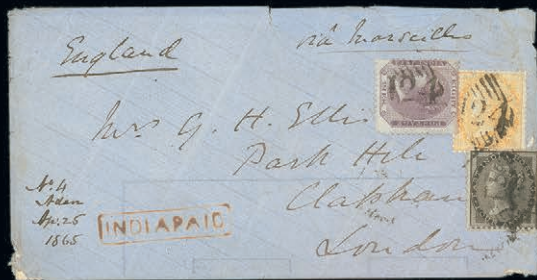 England
via Marseilles
Mrs G. H. Ellis
Park Hill
Clapham
London
No. 4
Aden
Ap. 25
1865
INDIA PAID